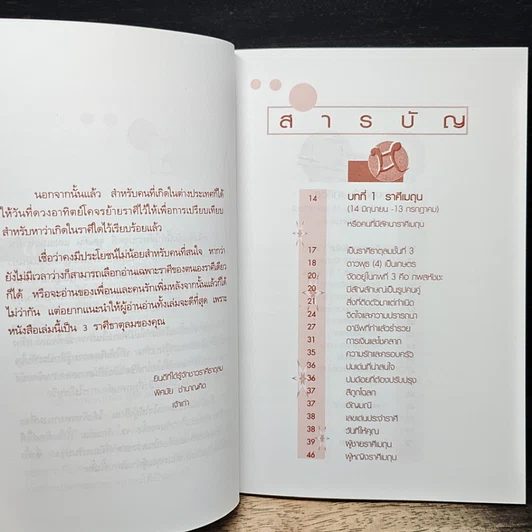 นอกจากนั้นแล้ว สำหรับคนที่เกิดในต่างประเทศก็ได้
ให้วันที่ดวงอาทิตย์โคจรย้ายราศีไว้ให้เพื่อการเปรียบเทียบ
สำหรับหาว่าเกิดในราศีใดไว้เรียบร้อยแล้ว
เชื่อว่าคงมีประโยชน์ไม่น้อยสำหรับคนที่สนใจ หากว่า
ยังไม่มีเวลาว่างก็สามารถเลือกอ่านเฉพาะราศีของตนเองราศีเดียว
ก็ได้ หรือจะอ่านของเพื่อนและคนรักเพิ่มหลังจากนั้นก็ได้
ไม่ว่ากัน แต่อยากแนะนำให้ผู้อ่านอ่านทั้งเล่มจะดีที่สุด เพราะ
หนังสือเล่มนี้เป็น 3 ราศีธาตุลมของคุณ
ยินดีที่ได้รู้จักชาวราศีธาตุลม
พิศมัย ชำนาญคิด
เจ้าเก่า
สารบัญ
14 บทที่ 1 ราศีเมถุน
(14 มิถุนายน -13 กรกฎาคม)
หรือคนที่มีลัคนาราศีเมถุน
17 เป็นราศีธาตุลมชั้นที่ 3
18 ดาวพุธ (4) เป็นเกษตร
20 จัดอยู่ในภพที่ 3 คือ ภพสหัชชะ
20 มีสัญลักษณ์เป็นรูปคนคู่
21 สิ่งที่ติดตัวมาแต่กำเนิด
24 จิตใจและความปรารถนา
27 อาชีพที่ทำแล้วร่ำรวย
31 การเงินและโชคลาภ
35 ความรักและครอบครัว
36 ปมเด่นที่น่าสนใจ
36 ปมด้อยที่ต้องปรับปรุง
37 สีถูกโฉลก
37 อัญมณี
38 เลขเด่นประจำราศี
38 วันที่ให้คุณ
39 ผู้ชายราศีเมถุน
46 ผู้หญิงราศีเมถุน